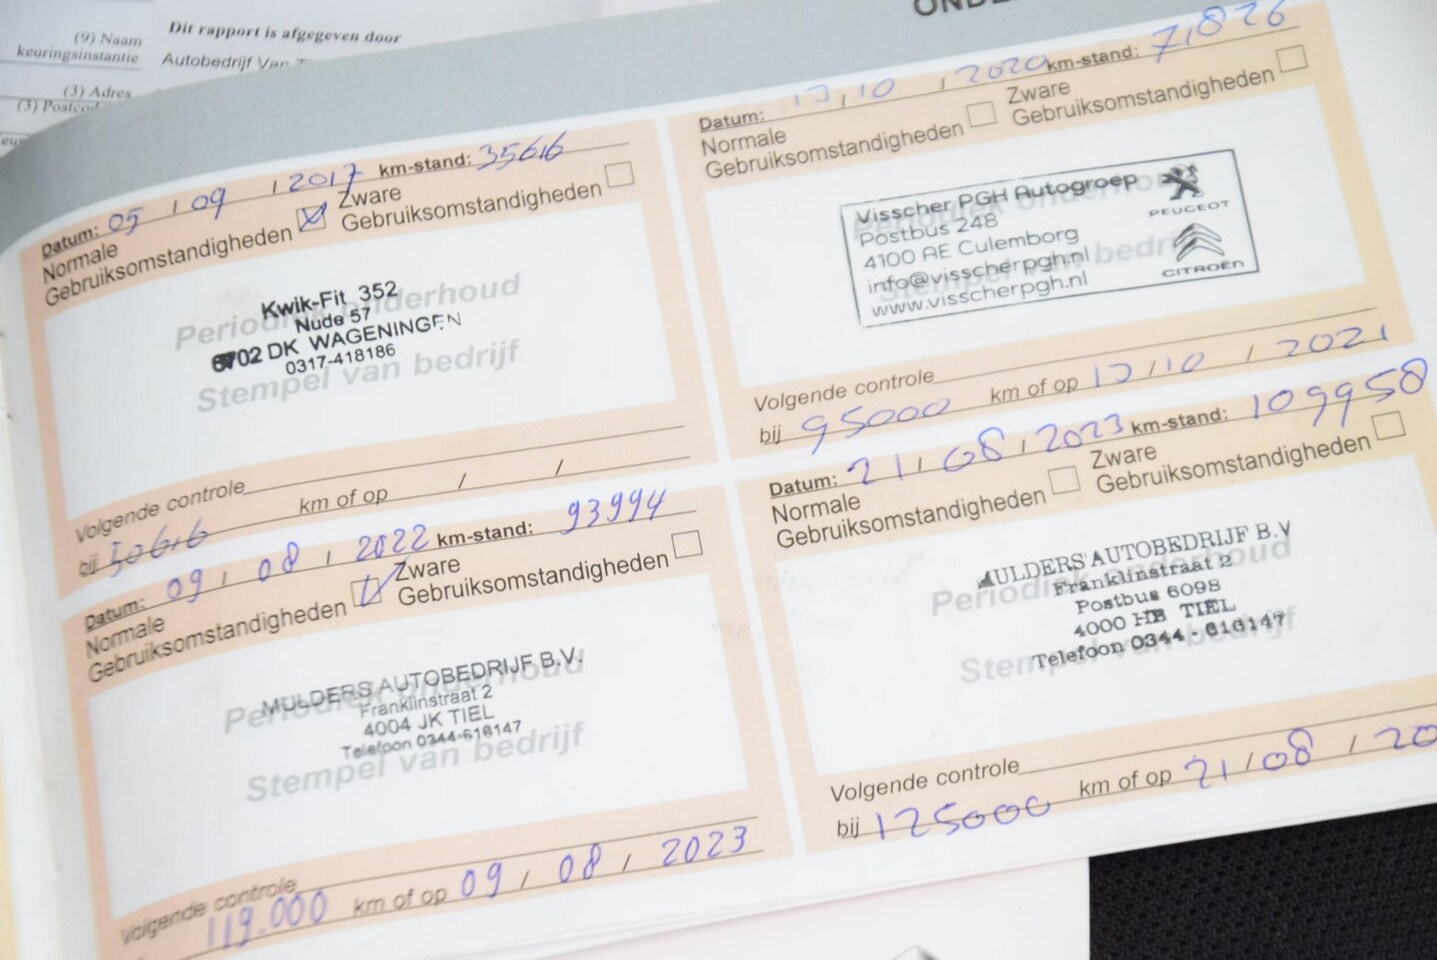 OND
(9) Naam
keuringsinstantie
Dit rapport is afgegeven door
Autobedrijf Van
(3) Adres
(3)
Datum: 05 / 09 / 2017 km-stand: 35616
Normale
Gebruiksomstandigheden
Zware
Gebruiksomstandigheden
Periodiek onderhoud
Stempel van bedrijf
Kwik-Fit 352
Nude 57
6702 DK WAGENINGEN
0317-418186
Volgende controle
bij 50616 km of op / /
Datum: / 10 / 2020 km-stand: 71,826
Normale
Gebruiksomstandigheden
Zware
Gebruiksomstandigheden
Periodiek onderhoud
Stempel van bedrijf
Visscher PGH Autogroep
Postbus 248
4100 AE Culemborg
info@visscherpgh.nl
www.visscherpgh.nl
PEUGEOT
CITROËN
Volgende controle
bij 95000 km of op / 10 / 2021
Datum: 09 / 08 / 2022 km-stand: 93994
Normale
Gebruiksomstandigheden
Zware
Gebruiksomstandigheden
Periodiek onderhoud
Stempel van bedrijf
MULDERS AUTOBEDRIJF B.V.
Franklinstraat 2
4004 JK TIEL
Telefoon 0344-616147
Volgende controle
119.000 km of op 09 / 08 / 2023
Datum: 21 / 08 / 2023 km-stand: 109958
Normale
Gebruiksomstandigheden
Zware
Gebruiksomstandigheden
Periodiek onderhoud
Stempel van bedrijf
MULDERS AUTOBEDRIJF B.V
Franklinstraat 2
Postbus 6098
4000 HB TIEL
Telefoon 0344 - 616147
Volgende controle
bij 125000 km of op 21 / 08 / 20